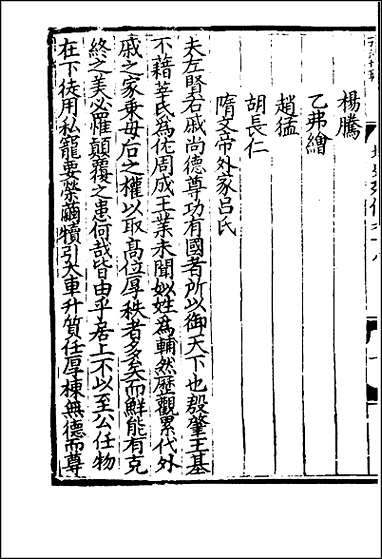 楊騰
乙弗繪
趙猛
胡長仁
隋文帝外家呂氏
夫左賢右戚尚德尊功有國者所以御天下也殷肇王基
不藉莘氏為佐周成王業未聞姒姓為輔然歷觀累代外
戚之家乘母后之權以取高位厚秩者多矣而鮮能有克
終之美必罹顛覆之患何哉皆由乎居上不以至公任物
在下徒用私寵要榮繭犢引大車升質任厚棟無德而尊